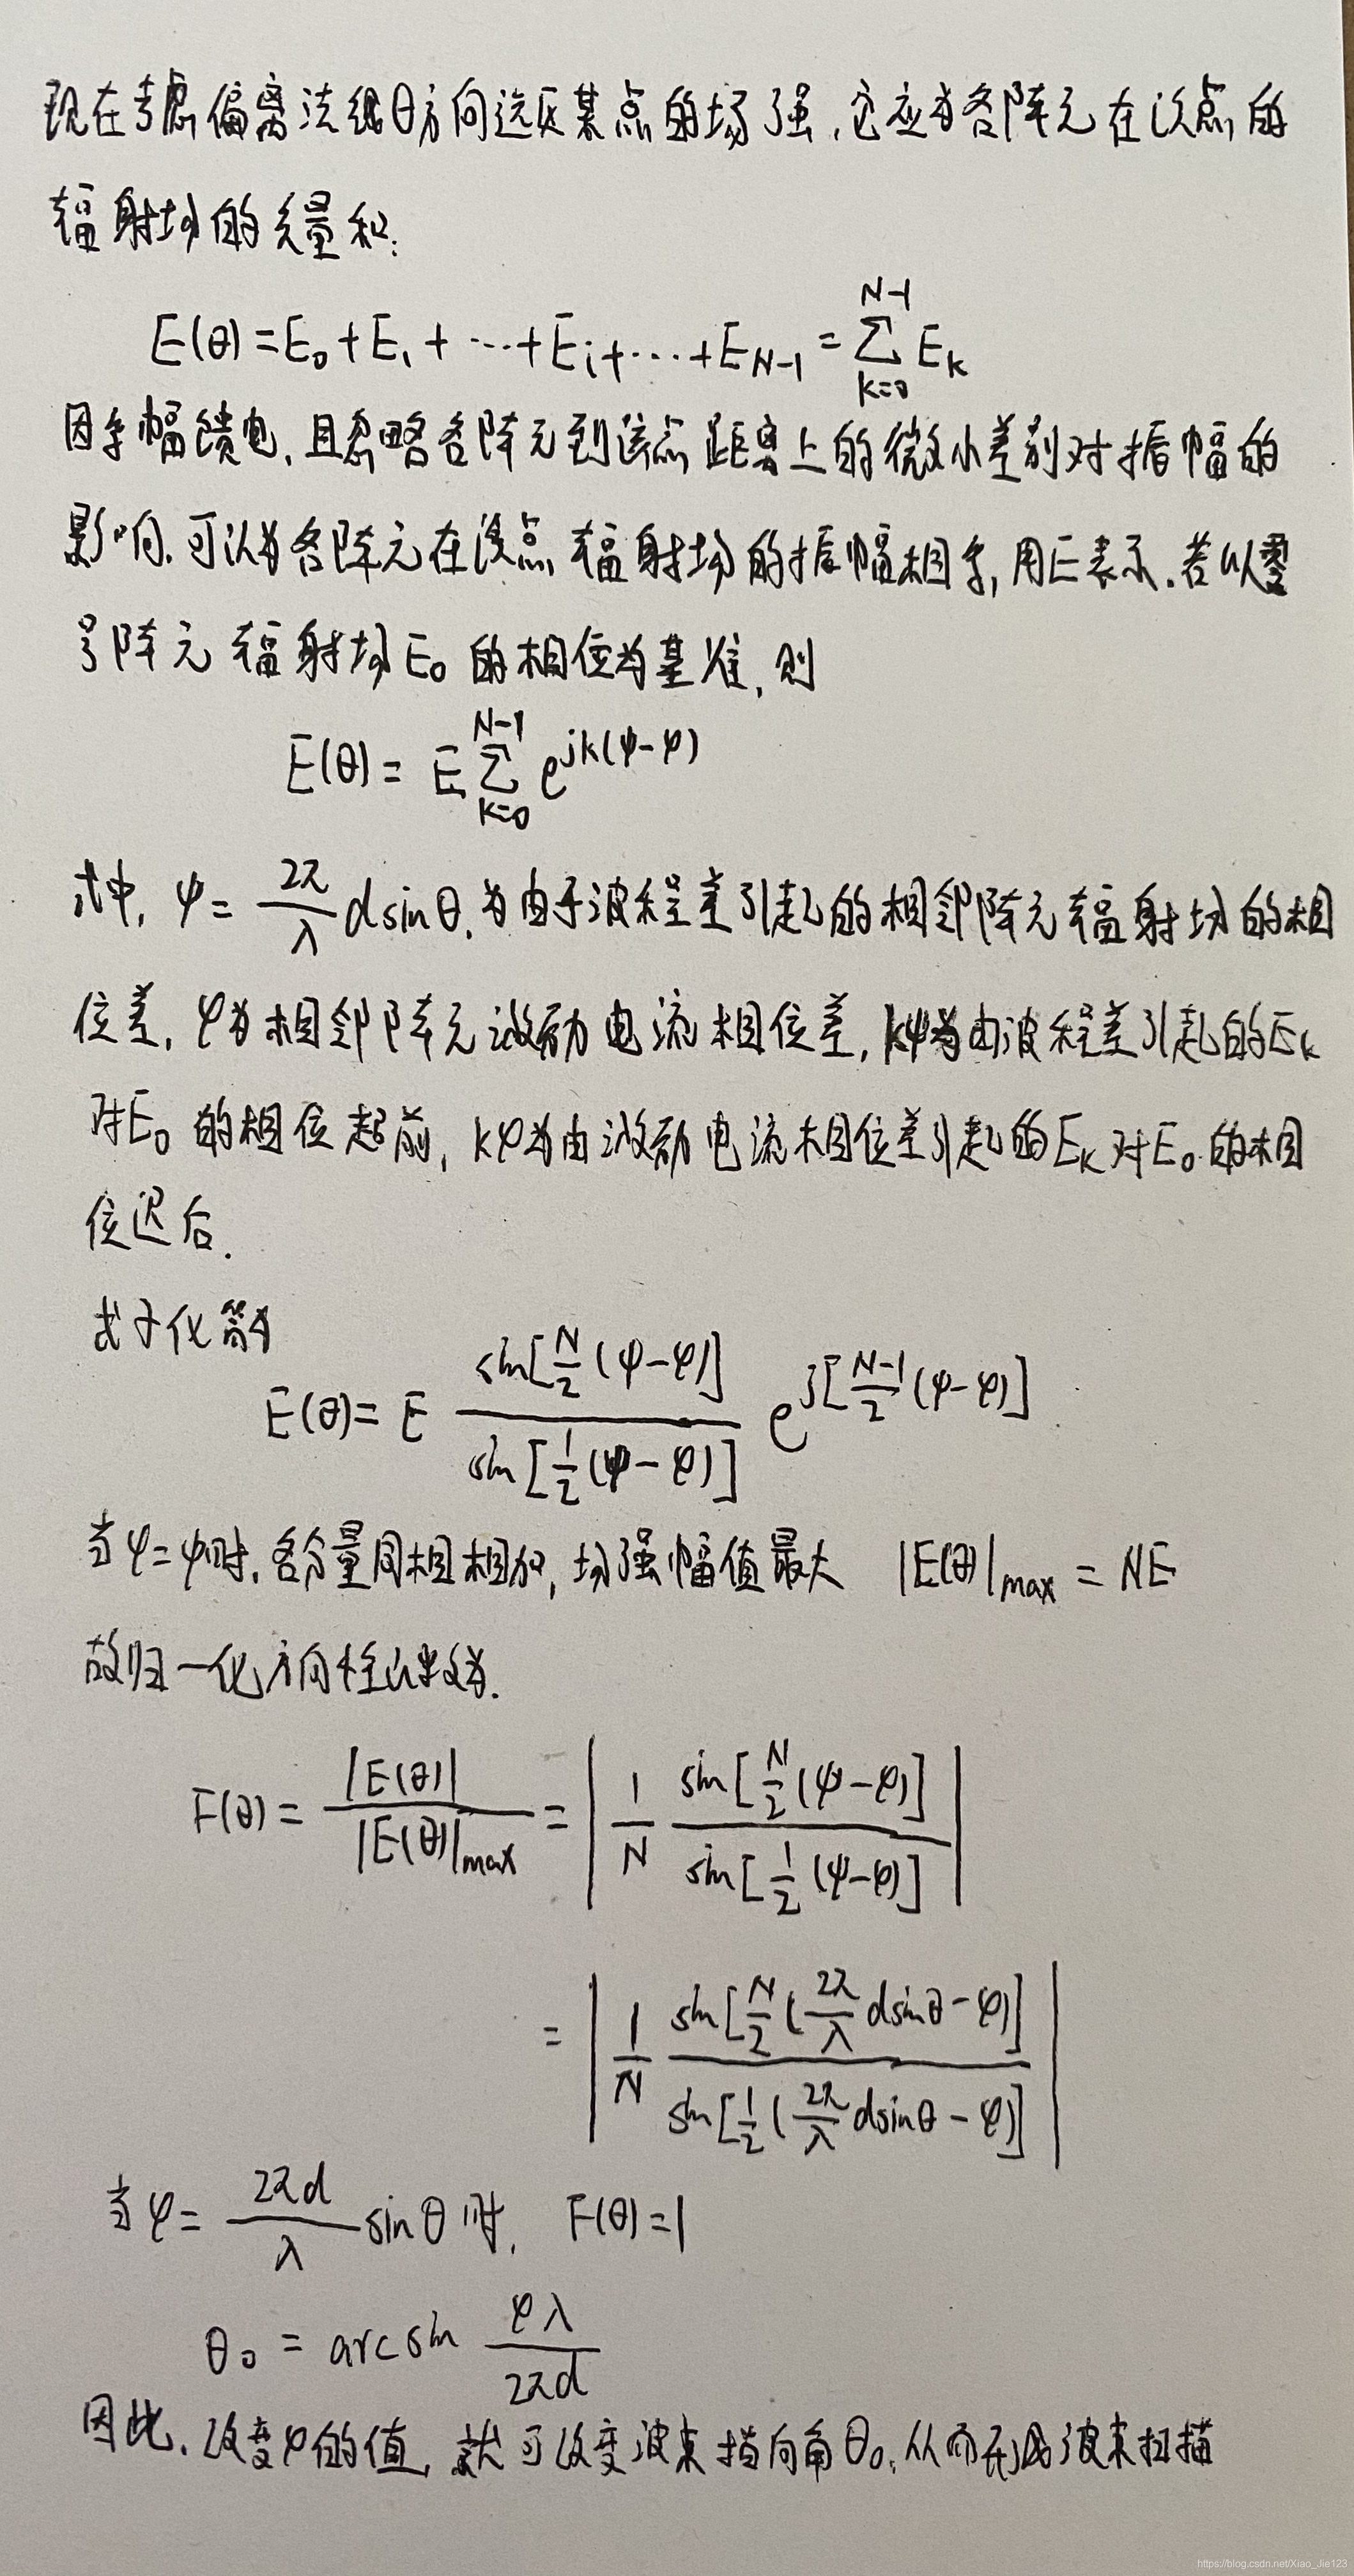 现在考虑偏离法线θ方向远区某点的场强,它应为各阵元在该点的
辐射场的矢量和:
E(θ)=E₀+E₁+⋯+Eᵢ+⋯+E_{N-1}=∑_{k=0}^{N-1}E_k
因等幅馈电,且忽略各阵元到该点距离上的微小差别对振幅的
影响.可以为各阵元在该点辐射场的振幅相等,用E表示.若以零
号阵元辐射场E₀的相位为基准,则
E(θ)=E∑_{k=0}^{N-1}e^{jk(ψ-φ)}
式中,ψ=\frac{2π}{λ}dsinθ,为由于波程差引起的相邻阵元辐射场的相
位差,φ为相邻阵元激励电流相位差,kψ为由波程差引起的E_k
对E₀的相位超前,kφ为由激励电流相位差引起的E_k对E₀的相
位迟后.
式子化简为
E(θ)=E\frac{sin[\frac{N}{2}(ψ-φ)]}{sin[\frac{1}{2}(ψ-φ)]}e^{j[\frac{N-1}{2}(ψ-φ)]}
当φ=ψ时,各分量同相相加,场强幅值最大 |E(θ)|_{max}=NE
故归一化方向性函数为.
F(θ)=\frac{|E(θ)|}{|E(θ)|_{max}}=|\frac{1}{N}\frac{sin[\frac{N}{2}(ψ-φ)]}{sin[\frac{1}{2}(ψ-φ)]}|
=|\frac{1}{N}\frac{sin[\frac{N}{2}(\frac{2π}{λ}dsinθ-φ)]}{sin[\frac{1}{2}(\frac{2π}{λ}dsinθ-φ)]}|
当φ=\frac{2πd}{λ}sinθ时,F(θ)=1
θ₀=arcsin\frac{φλ}{2πd}
因此,改变φ的值,就可改变波束指向角θ₀,从而形成波束扫描
https://blog.csdn.net/Xiao_Jie123